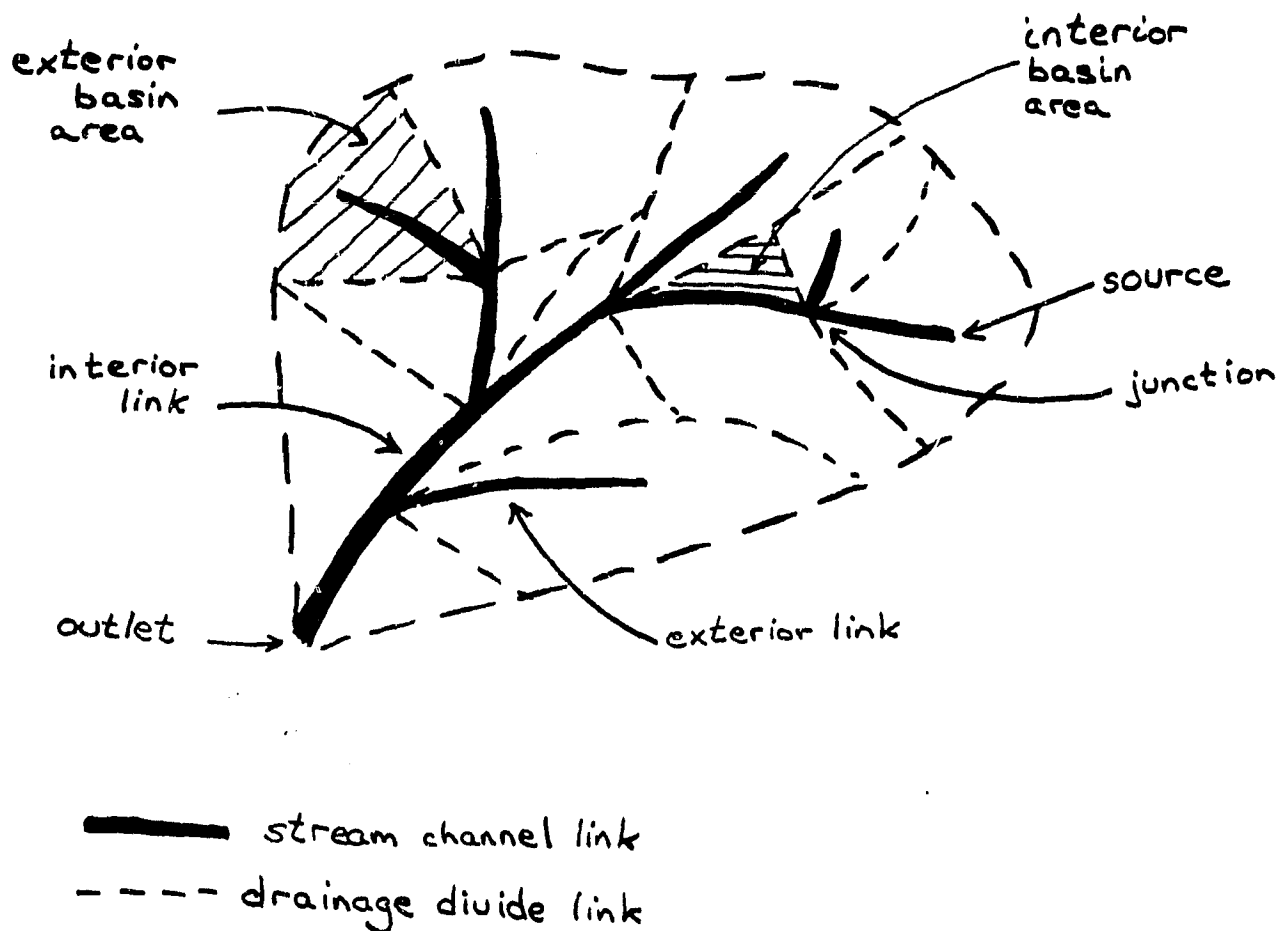 exterior
basin
area
interior
basin
area
source
junction
interior
link
outlet
exterior link
stream channel link
drainage divide link